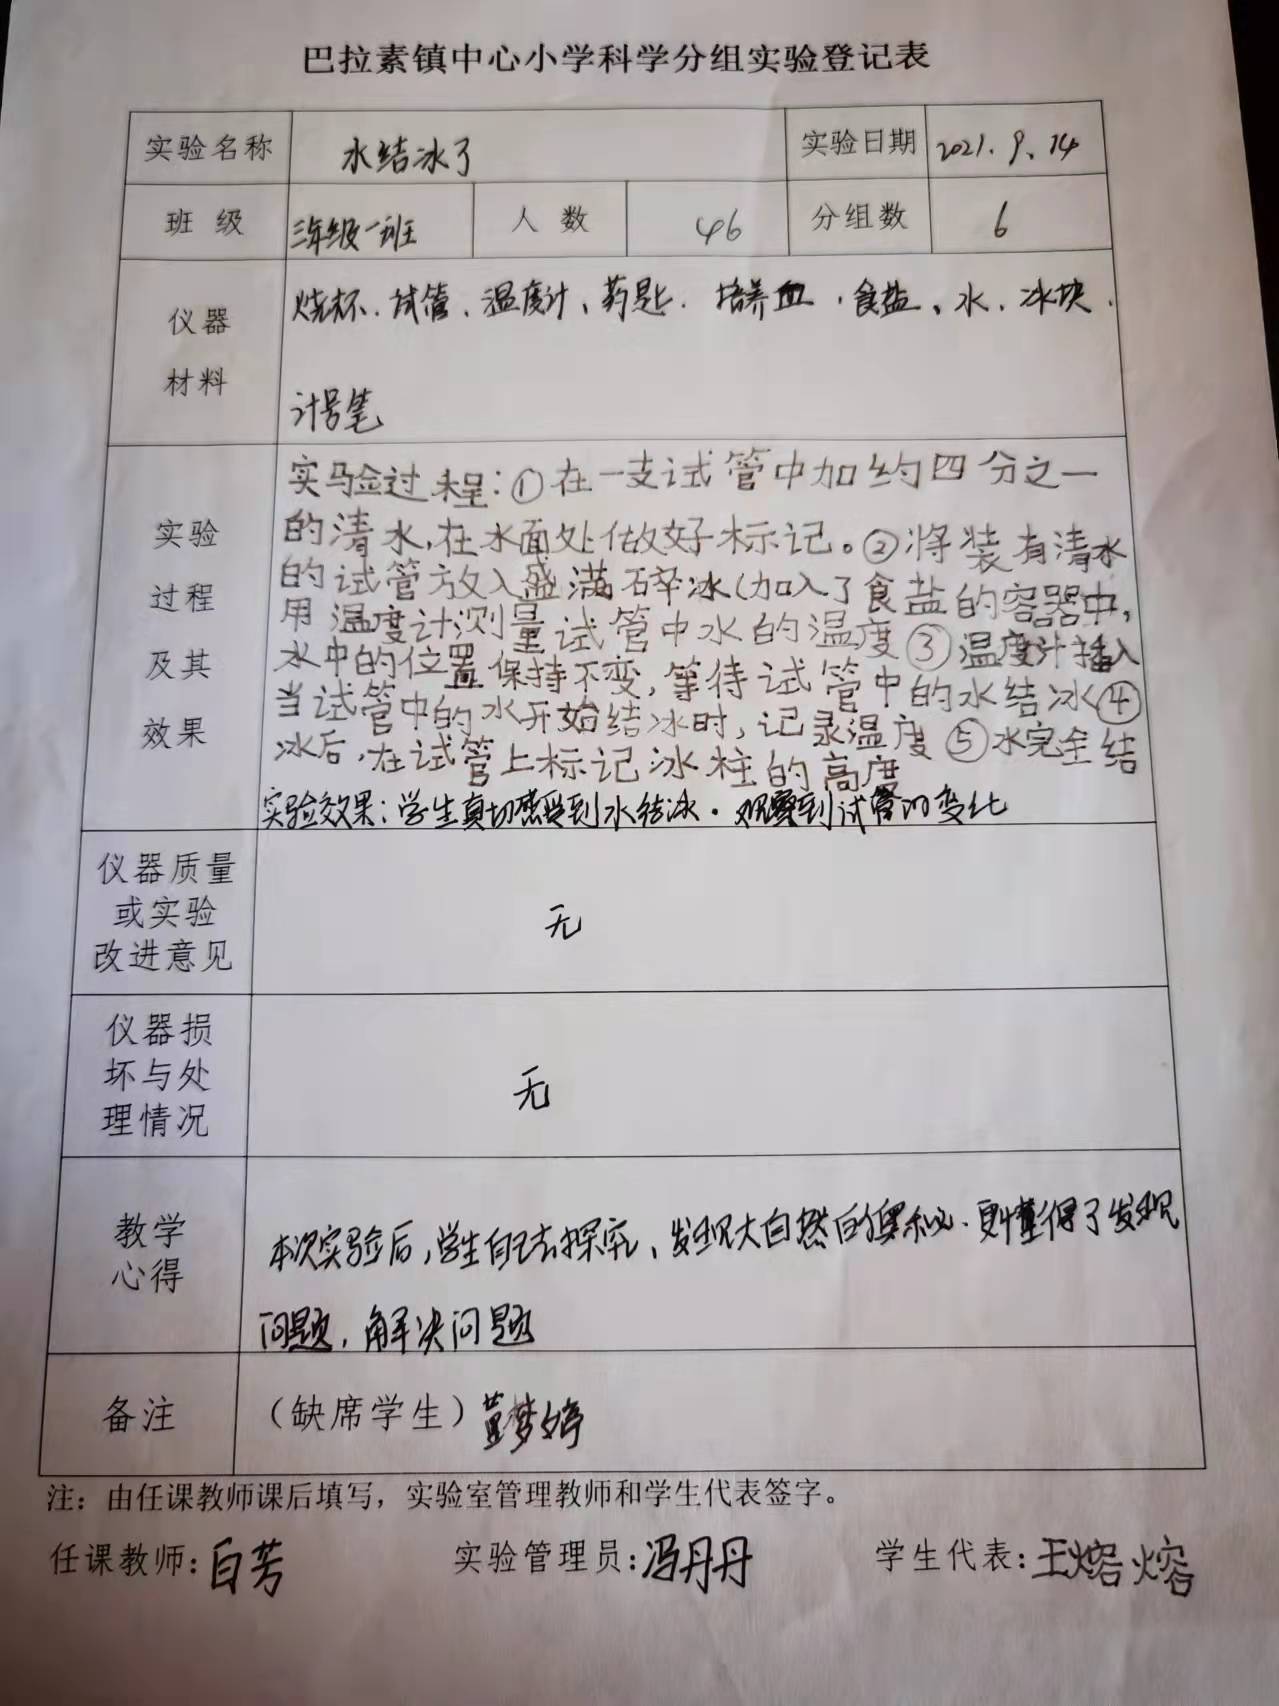 巴拉素镇中心小学科学分组实验登记表
实验名称 水结冰了 实验日期 2021.9.14
班 级 三年级一班 人 数 46 分组数 6
仪器
材料
烧杯、试管、温度计、药匙、培养皿、食盐、水、冰块、
计号笔
实验
过程
及其
效果
实验过程:①在一支试管中加约四分之一
的清水,在水面处做好标记。②将装有清水
的试管放入盛满碎冰(加入了食盐的容器中,
用温度计测量试管中水的温度③温度计插入
水中的位置保持不变,等待试管中的水结冰④
当试管中的水开始结冰时,记录温度⑤水完全结
冰后,在试管上标记冰柱的高度
实验效果:学生真切感受到水结冰.观察到试管的变化
仪器质量
或实验
改进意见
无
仪器损
坏与处
理情况
无
教学
心得
本次实验后,学生自己去探究、发现大自然的奥秘.更懂得了发现
问题,解决问题
备注 (缺席学生)黄梦婷
注:由任课教师课后填写,实验室管理教师和学生代表签字。
任课教师:白芳 实验管理员:冯丹丹 学生代表:王熔熔